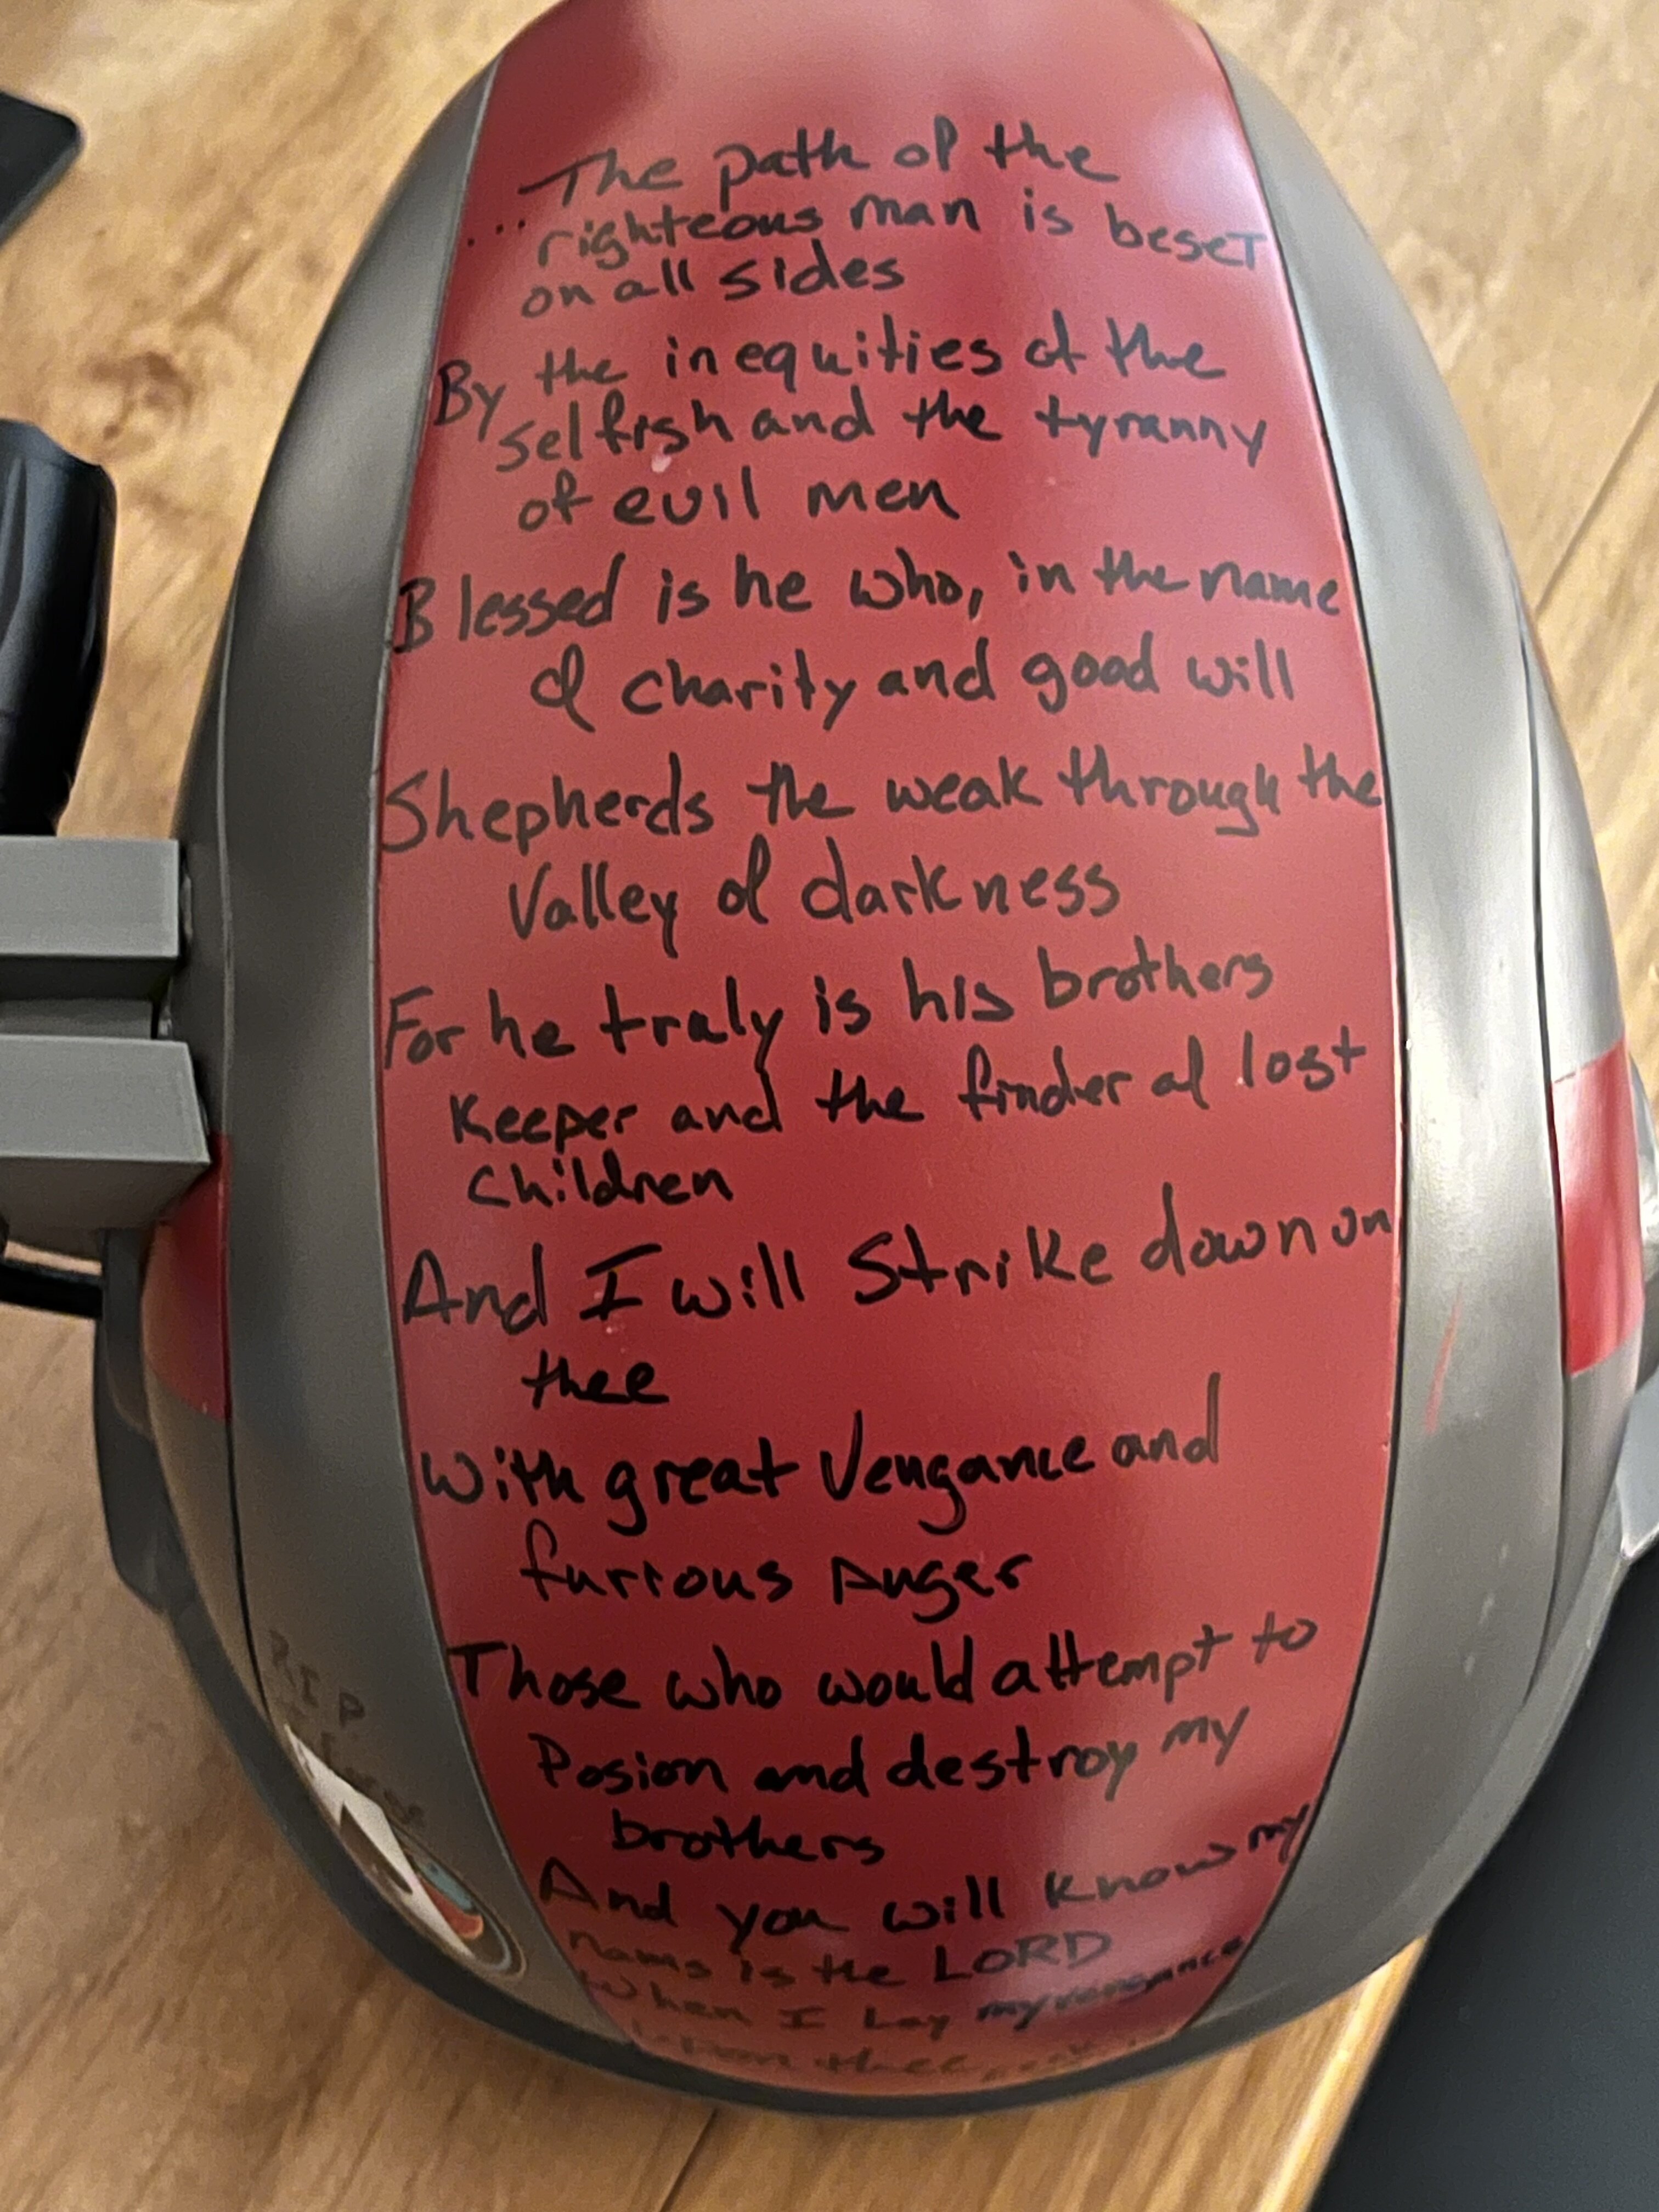 ...The path of the
righteous man is beset
on all sides
By the inequities of the
selfish and the tyranny
of evil men
Blessed is he who, in the name
of charity and good will
Shepherds the weak through the
Valley of darkness
For he truly is his brothers
Keeper and the finder of lost
Children
And I will Strike down on
thee
With great Vengance and
furious Anger
Those who would attempt to
Posion and destroy my
brothers
And you will know my
name is the LORD
When I Lay my vengance
upon thee
RIP